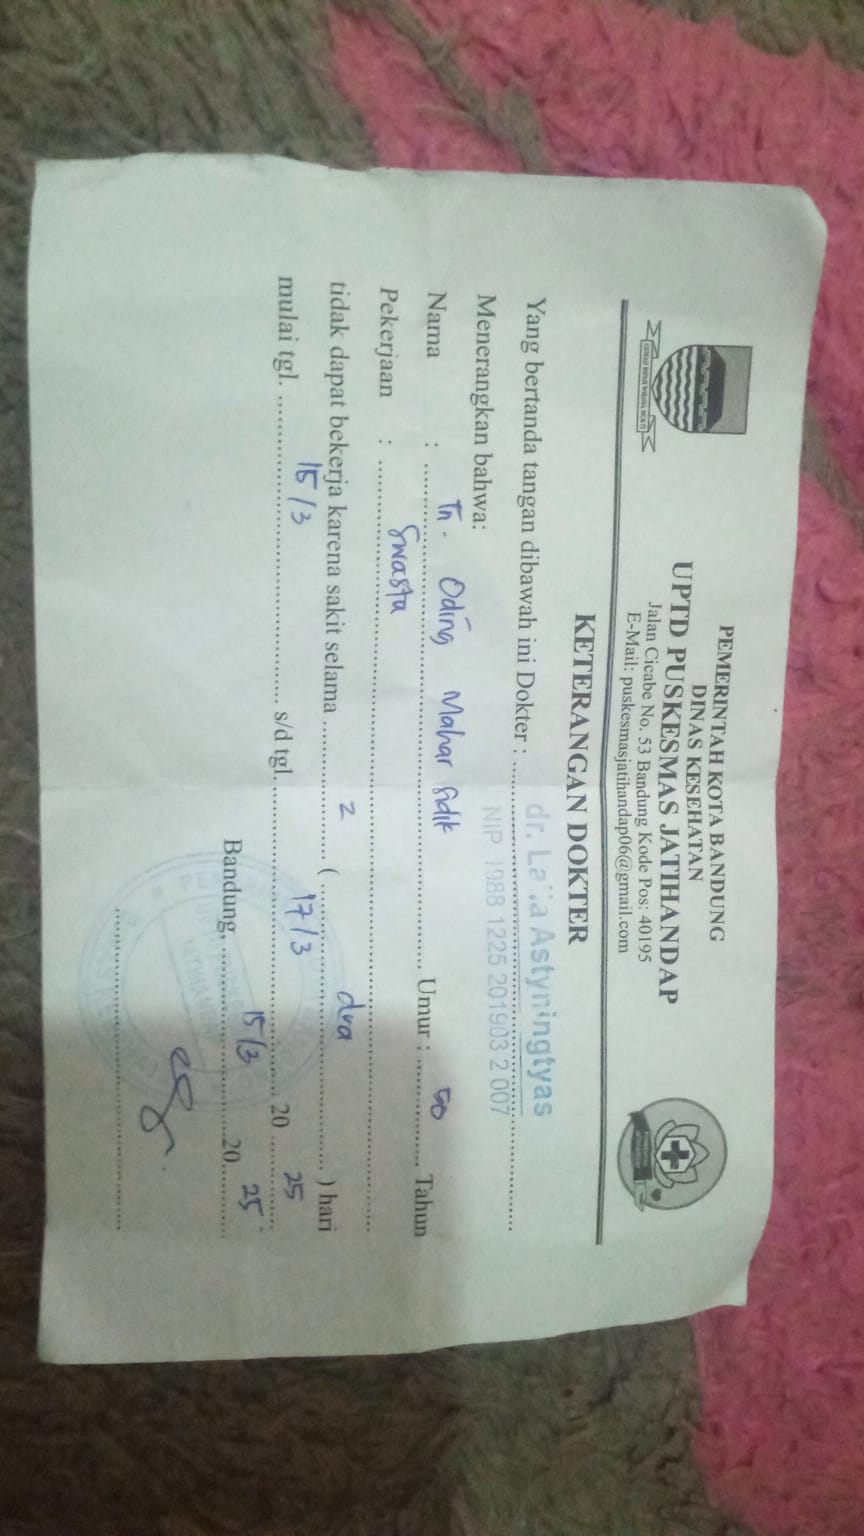 PEMERINTAH KOTA BANDUNG
DINAS KESEHATAN
UPTD PUSKESMAS JATIHANDAP
Jalan Cicabe No. 53 Bandung Kode Pos: 40195
E-Mail: puskesmasjatihandap06@gmail.com
KETERANGAN DOKTER
Yang bertanda tangan dibawah ini Dokter : dr. Laila Astyningtyas
NIP. 1988 1225 201903 2 007
Menerangkan bahwa:
Nama : Tn. Oding Mahar Sidik Umur : 50 Tahun
Pekerjaan : Swasta
tidak dapat bekerja karena sakit selama 2 ( dua ) hari
mulai tgl. 15/3 s/d tgl. 17/3 20 25
Bandung, 15/3 20 25